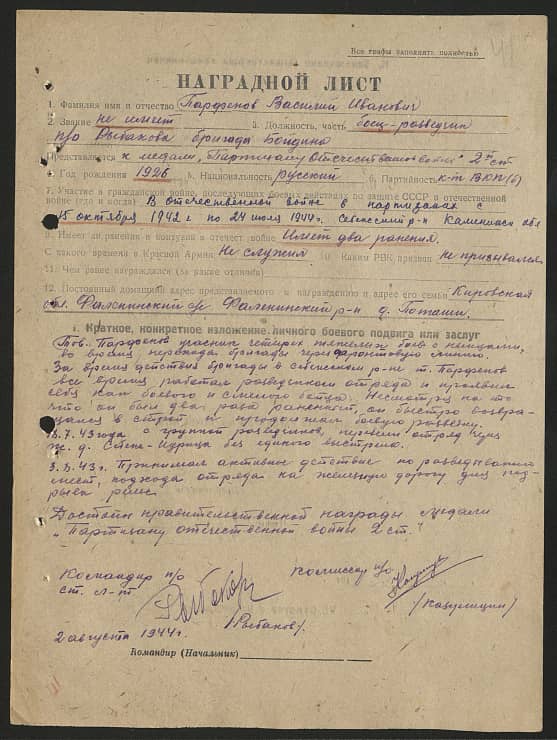 Все графы заполнять полностью
НАГРАДНОЙ ЛИСТ
1. Фамилия имя и отчество Парфенов Василий Иванович
2. Звание не имеет 3. Должность, часть боец-разведчик
п/о Рыбакова бригады Бойдина
Представляется к медали „Партизану Отечественной войны" 2й ст
4. Год рождения 1926 5. Национальность русский 6. Партийность к-т ВКП(б)
7. Участие в гражданской войне, последующих боевых действиях по защите СССР и отечественной
войне (где и когда) В отечественной войне в партизанах с
15 октября 1942 г по 24 июля 1944 г. Себежский р-н Калининск обл
8. Имеет ли ранения и контузии в отечест. войне Имеет два ранения.
С какого времени в Красной Армии Не служил 10. Каким РВК призван не призывался
11. Чем ранее награждался (за какие отличия)
12. Постоянный домашний адрес представляемого к награждению и адрес его семьи Кировская
обл. Фаленский р-н д. Поташи
I. Краткое, конкретное изложение личного боевого подвига или заслуг
Тов. Парфенов участник четырех тяжелых боев с немцами,
во время перехода бригады через фронтовую линию.
За время действия бригады в Себежском р-не т. Парфенов
все время работал разведчиком отряда и проявил
себя как боевого и смелого бойца. Несмотря на то
что он был два раза раненный, он быстро возвра-
щался в строй и продолжал боевую разведку.
7.43 года с группой разведчиков, перевел отряд через
ж. д. без единого выстрела.
43 г. Принимал активное действие по разведыванию
мест, подхода отряда на железную дорогу для под-
рыва рельс.
Достоин правительственной награды медали
„Партизану отечественной войны 2 ст."
Командир п/о
ст. л-т
Комиссар п/о
/Рыбаков/.
2 августа 1944 г.
Командир (Начальник)